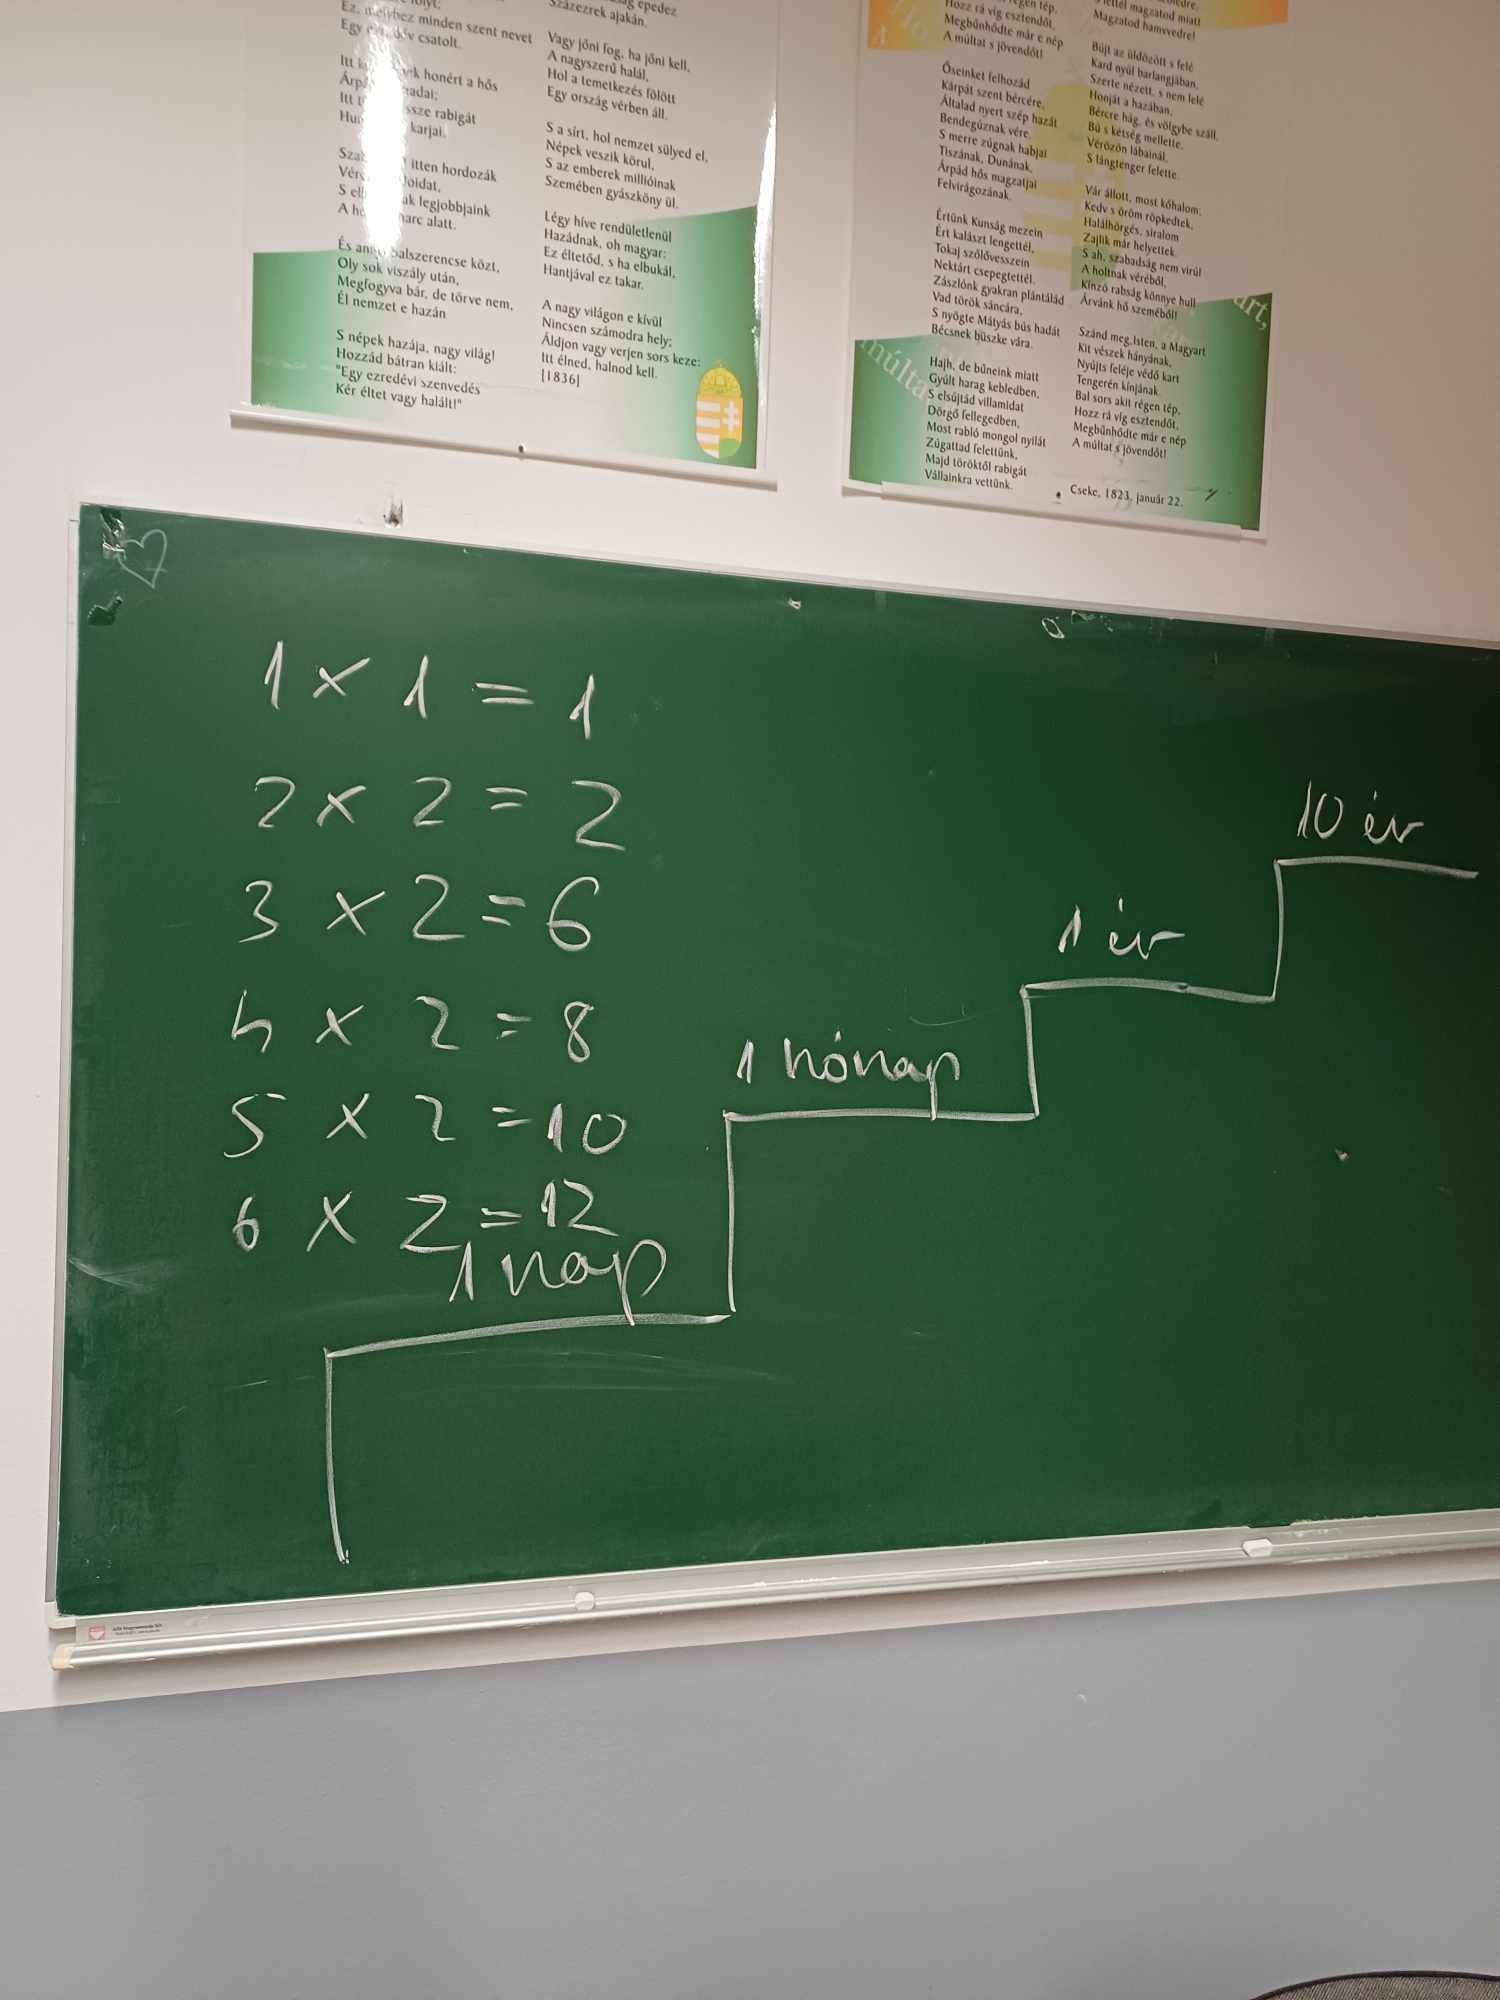 folyt;
Ez, melyhez minden szent nevet
Egy csatolt.
Itt honért a hős
hadai;
Itt ssze rabigát
karjai.
itten hordozák
S legjobbjaink
A harc alatt.
És balszerencse közt,
Oly sok viszály után,
Megfogyva bár, de törve nem,
Él nemzet e hazán
S népek hazája, nagy világ!
Hozzád bátran kiált:
"Egy ezredévi szenvedés
Kér éltet vagy halált!"
epedez
Százezrek ajakán.
Vagy jőni fog, ha jőni kell,
A nagyszerű halál,
Hol a temetkezés fölött
Egy ország vérben áll.
S a sírt, hol nemzet sülyed el,
Népek veszik körul,
S az emberek millióinak
Szemében gyászköny ül.
Légy híve rendületlenül
Hazádnak, oh magyar:
Ez éltetőd, s ha elbukál,
Hantjával ez takar.
A nagy világon e kívül
Nincsen számodra hely;
Áldjon vagy verjen sors keze:
Itt élned, halnod kell.
[1836]
régen tép,
Hozz rá víg esztendőt,
Megbűnhődte már e nép
A múltat s jövendőt!
Őseinket felhozád
Kárpát szent bércére,
Általad nyert szép hazát
Bendegúznak vére.
S merre zúgnak habjai
Tiszának, Dunának,
Árpád hős magzatjai
Felvirágozának.
Értünk Kunság mezein
Ért kalászt lengettél,
Tokaj szőlővesszein
Nektárt csepegtettél.
Zászlónk gyakran plántálád
Vad török sáncára,
S nyögte Mátyás bús hadát
Bécsnek büszke vára.
Hajh, de bűneink miatt
Gyúlt harag kebledben,
S elsújtád villamidat
Dörgő fellegedben,
Most rabló mongol nyilát
Zúgattad felettünk,
Majd töröktől rabigát
Vállainkra vettünk.
lettél magzatod miatt
Magzatod hamvvedre!
Bújt az üldözött s felé
Kard nyúl barlangjában,
Szerte nézett, s nem lelé
Honját a hazában,
Bércre hág, és völgybe száll,
Bú s kétség mellette,
Vérözön lábainál,
S lángtenger felette.
Vár állott, most kőhalom;
Kedv s öröm röpkedtek,
Halálhörgés, siralom
Zajlik már helyettek.
S ah, szabadság nem virúl
A holtnak véréből,
Kínzó rabság könnye hull
Árvánk hő szeméből!
Szánd meg,Isten, a Magyart
Kit vészek hányának,
Nyújts feléje védő kart
Tengerén kínjának.
Bal sors akit régen tép,
Hozz rá víg esztendőt,
Megbűnhődte már e nép
A múltat s jövendőt!
Cseke, 1823, január 22.
1 x 1 = 1
2 x 2 = 2
3 x 2 = 6
4 x 2 = 8
5 x 2 = 10
6 x 2 = 12
1 nap
1 hónap
1 év
10 év